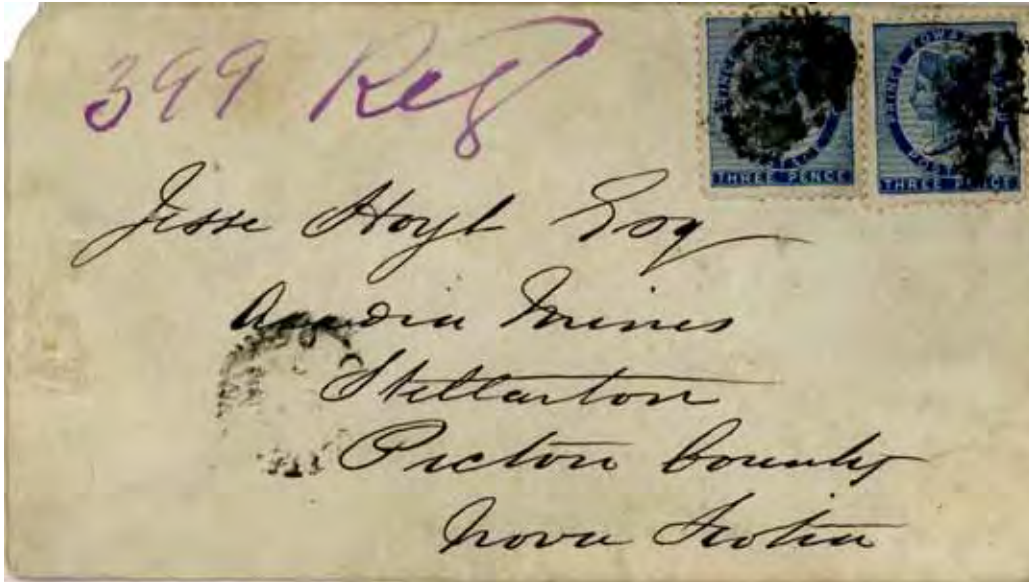 399 Reg
PRINCE EDWARD
POSTAGE
THREE PENCE
THREE PENCE
Jesse Hoyt Esq
Acadia Mines
Stellarton
Pictou County
Nova Scotia